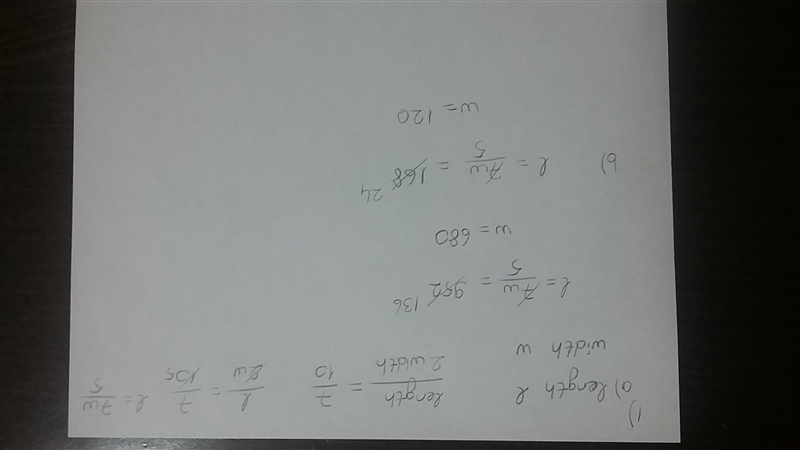 1)
a) length l length/2 width = 7/10 l/2w = 7/10 5 l = 7w/5
width w
l = 7w/5 = 952 136
w = 680
b) l = 7w/5 = 168 24
w = 120